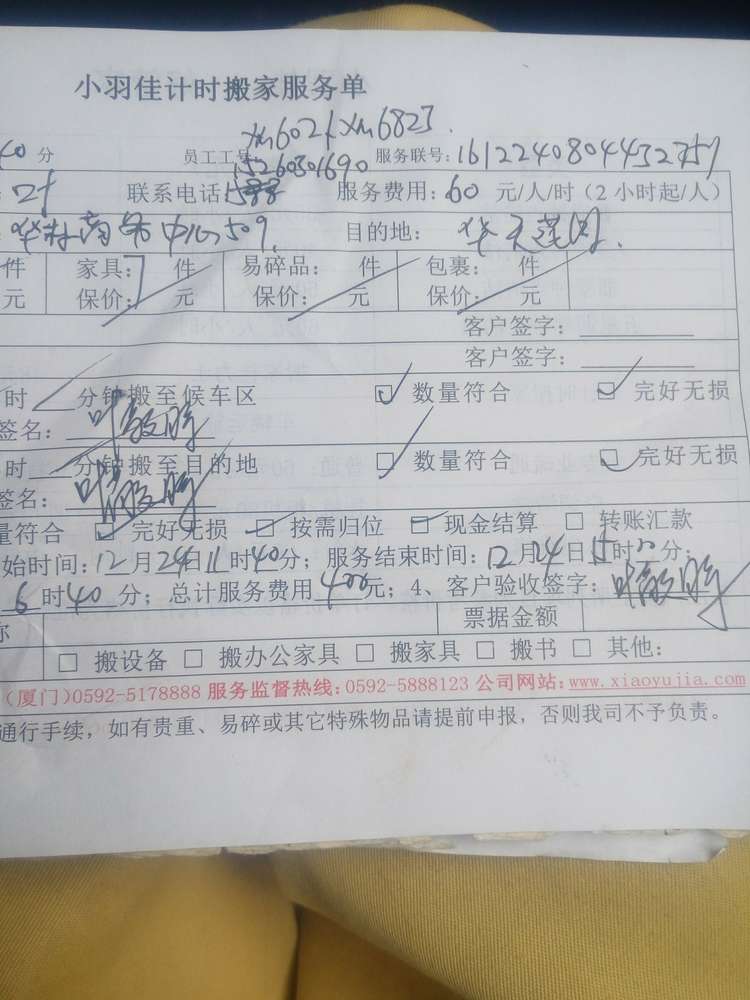 小羽佳计时搬家服务单
xm6021 xm6823.
40分 员工工号 服务联号:1612240804432757
15260301690
联系电话: 服务费用:60元/人/时(2小时起/人)
中心509, 目的地:
件 家具:7件 易碎品: 件 包裹: 件
元 保价: 元 保价: 元 保价: 元
客户签字:
客户签字:
时 分钟搬至候车区 ☑ 数量符合 ☑ 完好无损
签名:
时 分钟搬至目的地 ☑ 数量符合 ☑ 完好无损
签名:
量符合 ☑ 完好无损 ☑ 按需归位 ☑ 现金结算 □ 转账汇款
始时间:12月24日11时40分;服务结束时间:12月24日15时 分;
6时40分;总计服务费用400元;4、客户验收签字:
称 票据金额
□ 搬设备 □ 搬办公家具 □ 搬家具 □ 搬书 □ 其他:
(厦门)0592-5178888 服务监督热线:0592-5888123 公司网站:www.xiaoyujia.com
通行手续,如有贵重、易碎或其它特殊物品请提前申报,否则我司不予负责。